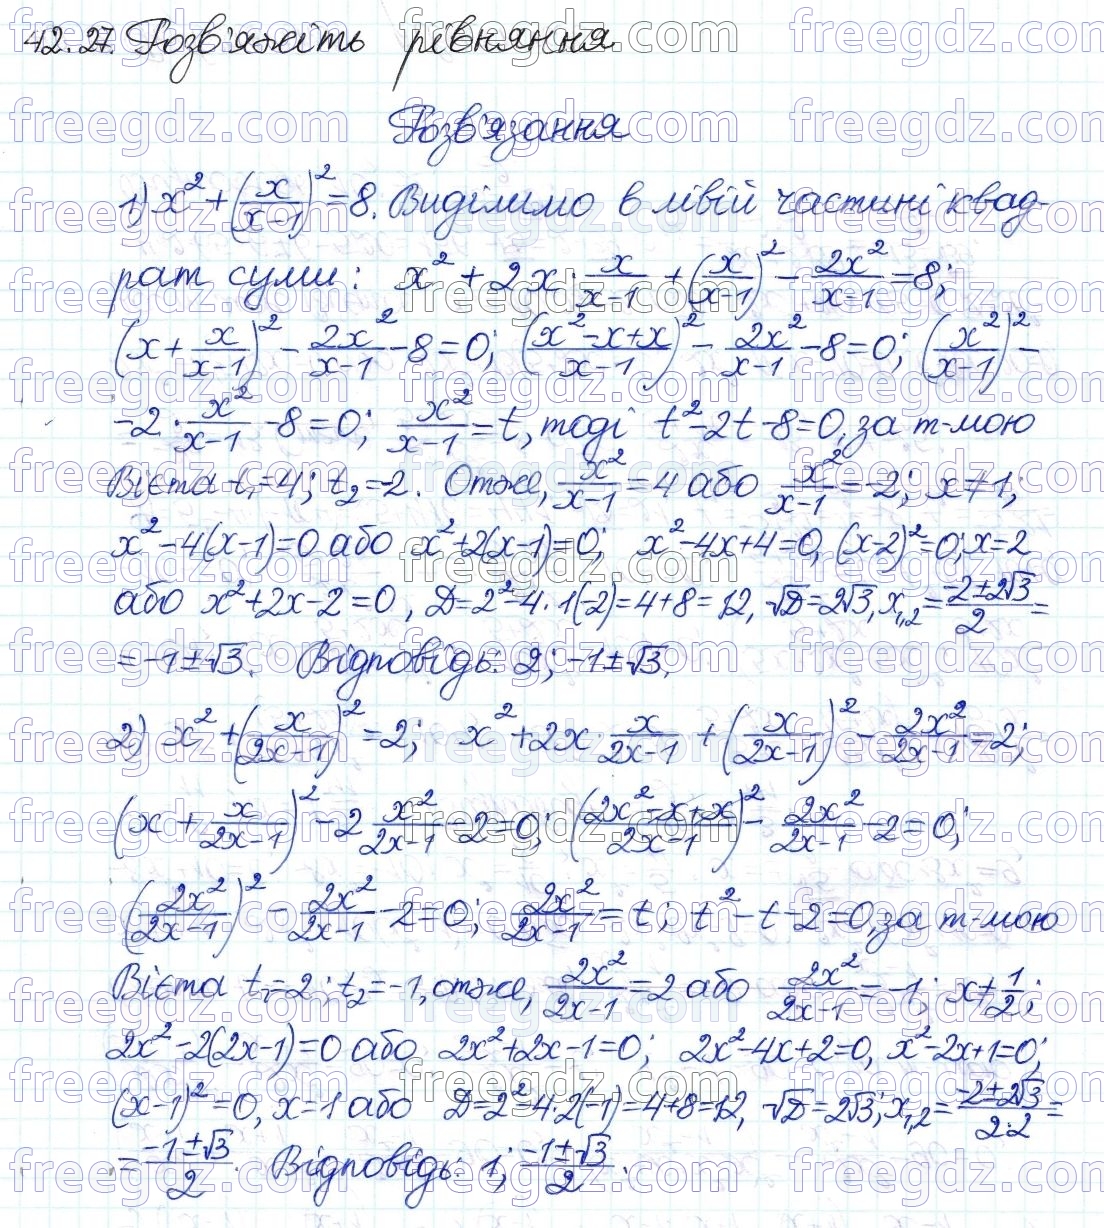 42.27. Розв'яжіть рівняння.
Розв'язання
1) x² + (x/(x-1))² = 8. Виділимо в лівій частині квад-
рат суми: x² + 2x · x/(x-1) + (x/(x-1))² - 2x²/(x-1) = 8;
(x + x/(x-1))² - 2x²/(x-1) - 8 = 0; ((x²-x+x)/(x-1))² - 2x²/(x-1) - 8 = 0; (x²/(x-1))² -
- 2 · x²/(x-1) - 8 = 0; x²/(x-1) = t, тоді t² - 2t - 8 = 0, за т-мою
Вієта t₁ = 4; t₂ = -2. Отже, x²/(x-1) = 4 або x²/(x-1) = -2; x ≠ 1;
x² - 4(x-1) = 0 або x² + 2(x-1) = 0; x² - 4x + 4 = 0, (x-2)² = 0; x = 2
або x² + 2x - 2 = 0, D = 2² - 4 · 1(-2) = 4 + 8 = 12, √D = 2√3, x₁,₂ = (-2±2√3)/2 =
= -1 ± √3. Відповідь: 2; -1 ± √3.
2) x² + (x/(2x-1))² = 2; x² + 2x · x/(2x-1) + (x/(2x-1))² - 2x²/(2x-1) = 2;
(x + x/(2x-1))² - 2 x²/(2x-1) - 2 = 0; ((2x²-x+x)/(2x-1))² - 2x²/(2x-1) - 2 = 0;
(2x²/(2x-1))² - 2x²/(2x-1) - 2 = 0; 2x²/(2x-1) = t; t² - t - 2 = 0, за т-мою
Вієта t₁ = 2; t₂ = -1, отже, 2x²/(2x-1) = 2 або 2x²/(2x-1) = -1; x ≠ 1/2;
2x² - 2(2x-1) = 0 або 2x² + 2x - 1 = 0; 2x² - 4x + 2 = 0, x² - 2x + 1 = 0;
(x-1)² = 0, x = 1 або D = 2² - 4 · 2(-1) = 4 + 8 = 12, √D = 2√3; x₁,₂ = (-2±2√3)/(2·2) =
= (-1±√3)/2. Відповідь: 1; (-1±√3)/2.
freegdz.com